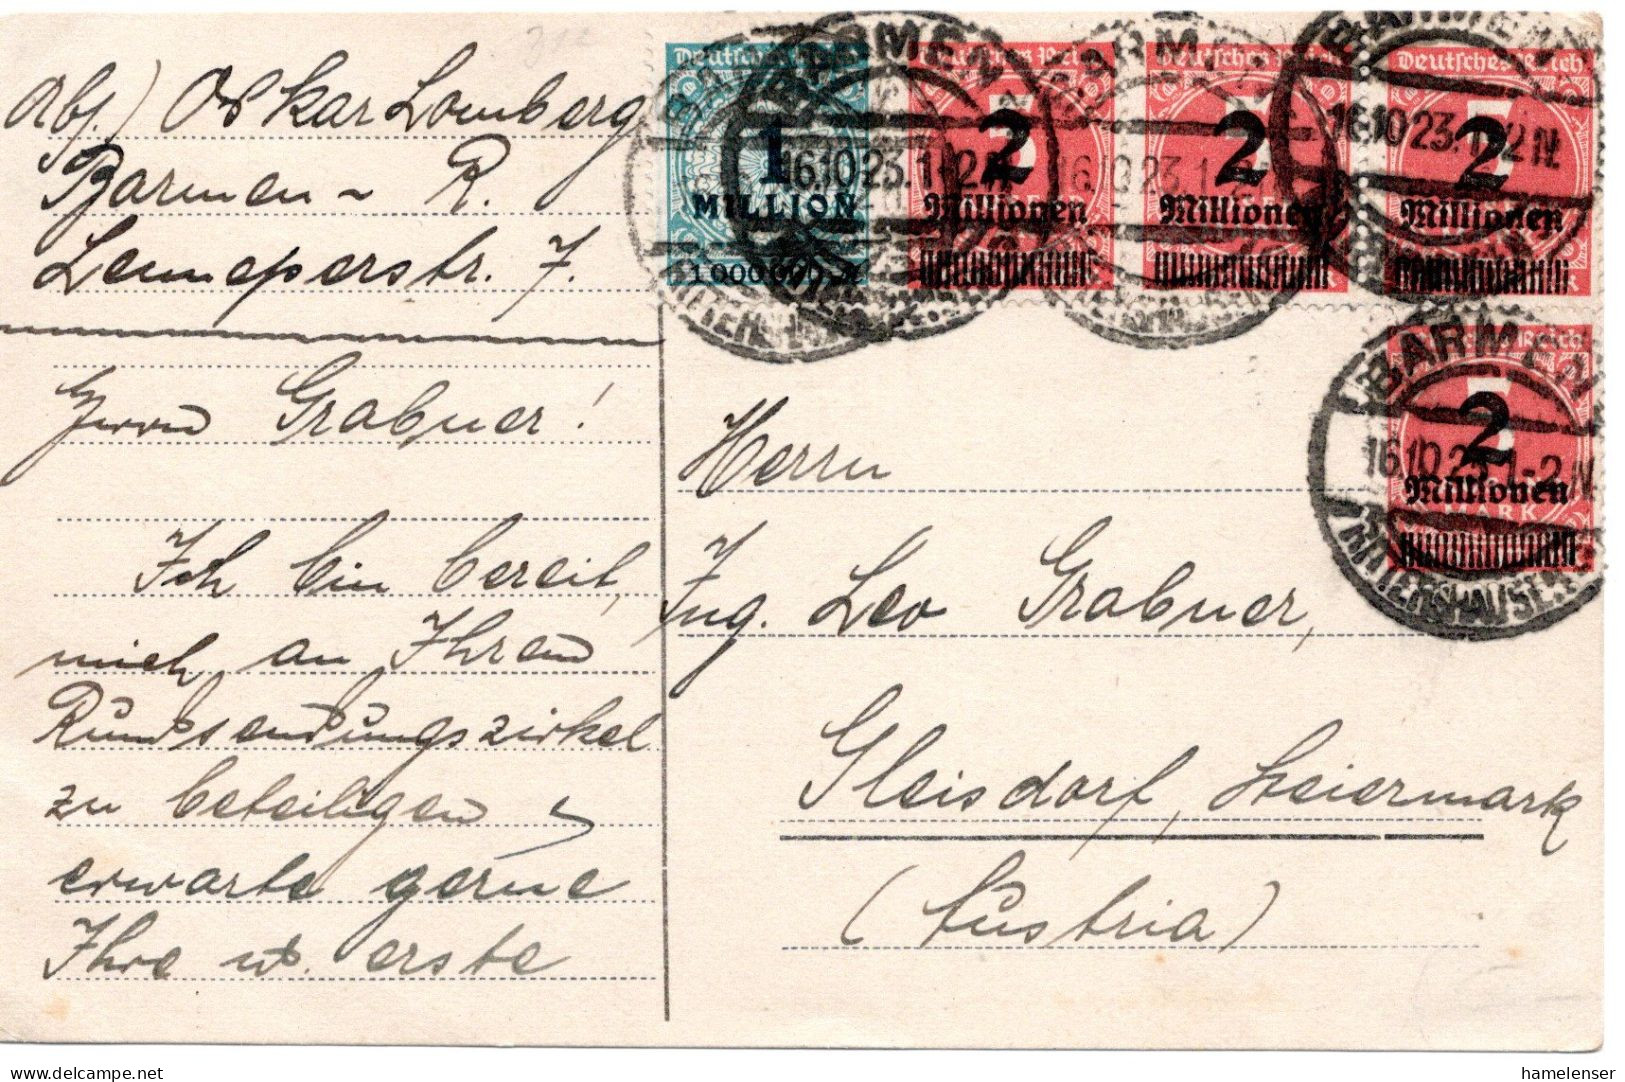 Abs.) Oskar Lomberg
Barmen - R.
Lenneperstr. 7.
Herrn Grabner!
Ich bin bereit,
mich an Ihren
Rundsendungszirkel
zu beteiligen
erwarte gerne
Ihre erste
Deutsches Reich
1
MILLION
Deutsches Reich
2
Millionen
Deutsches Reich
2
Millionen
Deutsches Reich
2
Millionen
2
Millionen
MARK
BARMEN
16.10.23.1-2N
RITTERSHAUSEN
Herrn
Ing. Leo Grabner,
Gleisdorf, Steiermark
(Austria)
www.delcampe.net
hamelenser